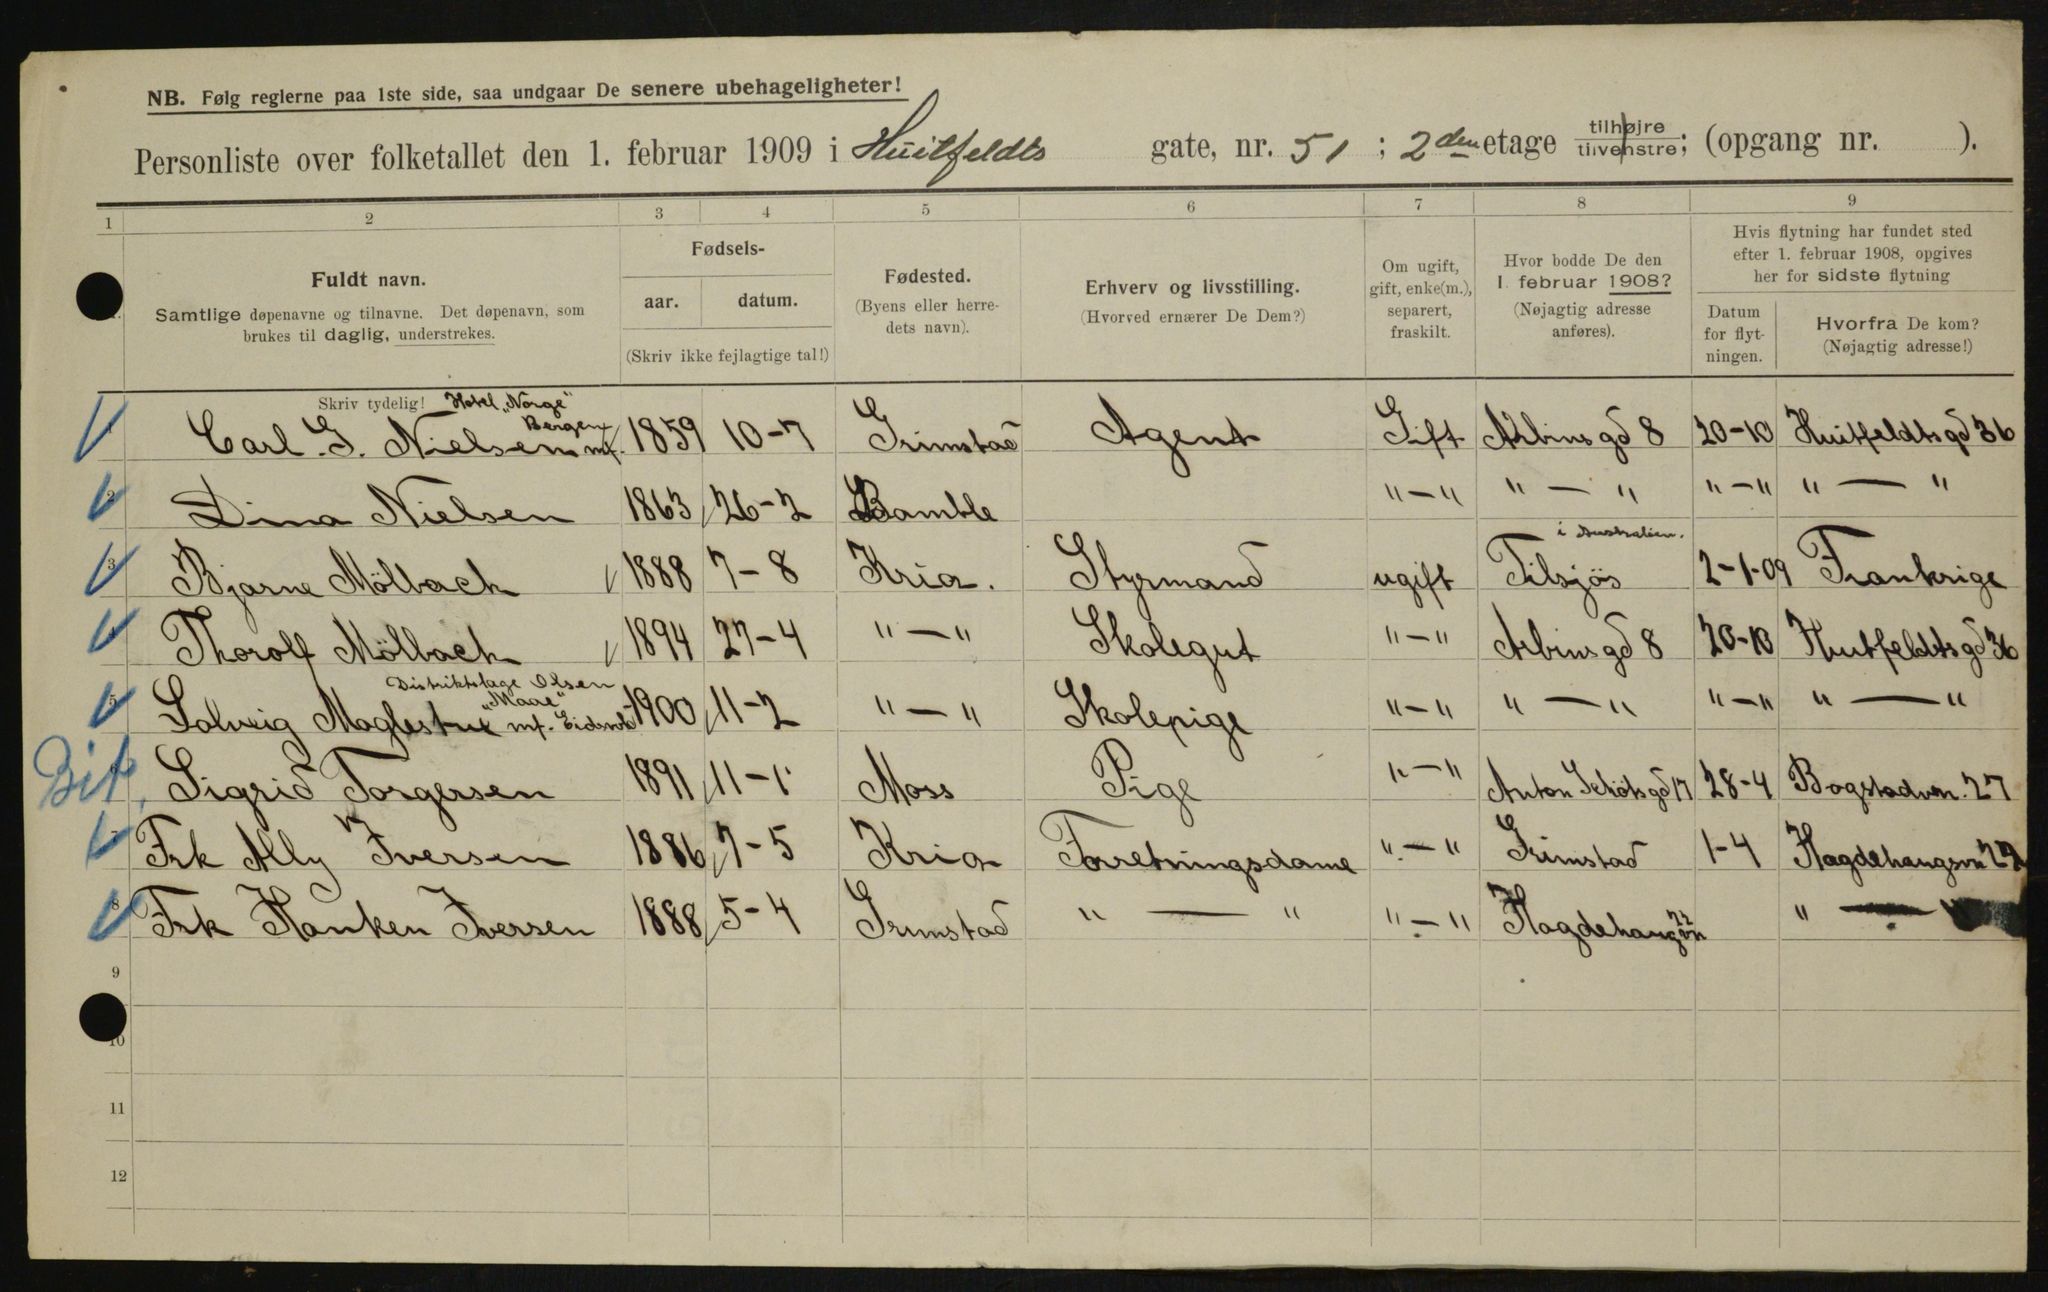 NB. Følg reglerne paa 1ste side, saa undgaar De senere ubehageligheter!
Personliste over folketallet den 1. februar 1909 i Huitfeldts gate, nr. 51 ; 2den etage tilhøjre tilvenstre; (opgang nr. ).
1 2 3 4 5 6 7 8 9
Fuldt navn.
Samtlige døpenavne og tilnavne. Det døpenavn, som
brukes til daglig, understrekes.
Fødsels-
aar. datum.
(Skriv ikke fejlagtige tal!)
Fødested.
(Byens eller herre-
dets navn).
Erhverv og livsstilling.
(Hvorved ernærer De Dem?)
Om ugift,
gift, enke(m.),
separert,
fraskilt.
Hvor bodde De den
1. februar 1908?
(Nøjagtig adresse
anføres).
Hvis flytning har fundet sted
efter 1. februar 1908, opgives
her for sidste flytning
Datum
for flyt-
ningen.
Hvorfra De kom?
(Nøjagtig adresse!)
Skriv tydelig! Hotel "Norge"
Bergen
Carl. G. Nielsen mf. 1859 10-7 Grimstad Agent Gift Arbinsgd 8 20-10 Huitfeldtsgd 36
2 Dina Nielsen 1863 26-2 Bamble "—" "—" "—" "—"
i Australien.
3 Bjarne Mölbach 1888 7-8 Kria. Styrmand ugift Tilsjøs 2-1-09 Frankrige
Thorolf Mölbach 1894 27-4 "—" Skolegut "—" Arbinsgd 8 20-10 Huitfeldtsgd 36
Distriktslage Olsen
"Maae"
5 Solveig Maglestue mf. Eidsvold 1900 11-2 "—" Skolepige "—" "—" "—" "—"
Bit. Sigrid Torgersen 1891 11-1 Moss Pige "—" Anton Schøtsgd 17 28-4 Bogstadvn. 27
Frk Ally Iversen 1886 7-5 Kria Forretningsdame "—" Grimstad 1-4 Hagdehaugsvn 22
8 Frk Hanken Iversen 1888 5-4 Grimstad "—" "—" Hagdehaugvn 22 "—"
9
10
11
12